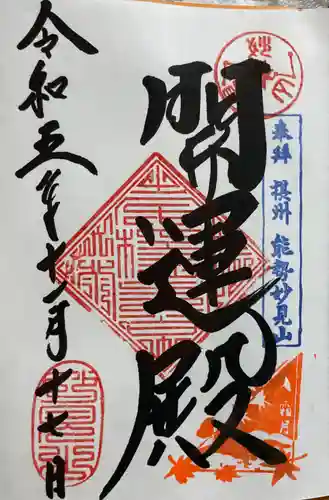 奉拝 摂州 能勢妙見山
開運殿
令和五年十一月十七日
霜月